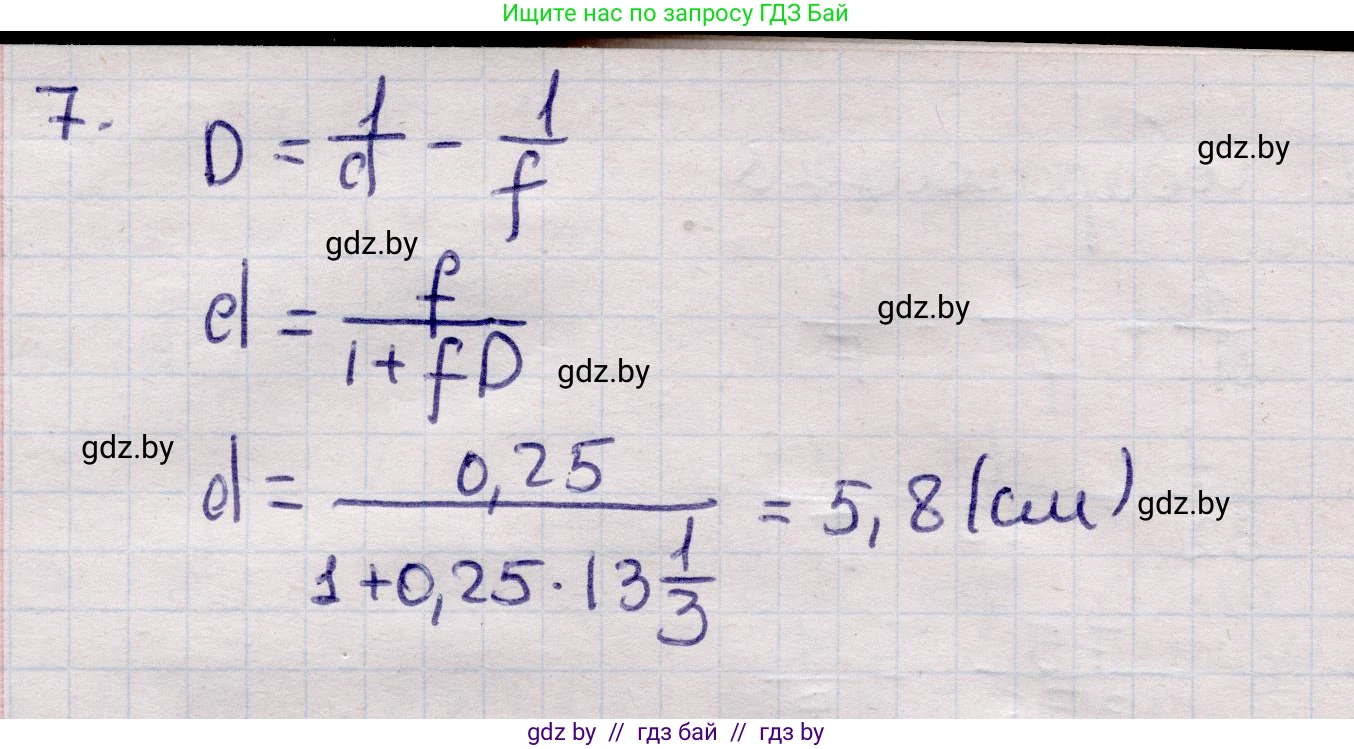 Ищите нас по запросу ГДЗ Бай
7. D = 1/d - 1/f
gdz.by
gdz.by
d = f/(1 + fD)
gdz.by
gdz.by
gdz.by
d = 0,25/(1 + 0,25 · 13 1/3) = 5,8 (см)
gdz.by
gdz.by // гдз бай // гдз by